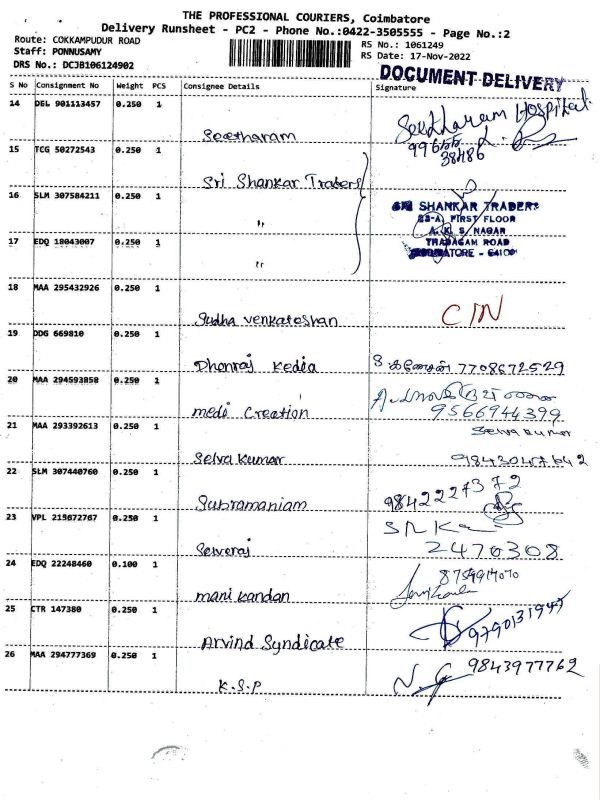 THE PROFESSIONAL COURIERS, Coimbatore
Delivery Runsheet - PC2 - Phone No.:0422-3505555 - Page No.:2
Route: COKKAMPUDUR ROAD
Staff: PONNUSAMY
DRS No.: DCJB106124902
RS No.: 1061249
RS Date: 17-Nov-2022
DOCUMENT DELIVERY
S No Consignment No Weight PCS Consignee Details Signature
14 DEL 901113457 0.250 1 Seetharam Seetharam HOSPITAL
38486
15 TCG 50272543 0.250 1 Sri Shankar Traders
16 SLM 307584211 0.250 1 "
SRI SHANKAR TRADERS
FIRST FLOOR
A. K. S. NAGAR
THADAGAM ROAD
COIMBATORE - 64100
17 EDQ 18043007 0.250 1 "
18 MAA 295432926 0.250 1 Sudha Venkateshan
19 DDG 669810 0.250 1 Dhenraj Kedia 7708672529
20 MAA 294593858 0.250 1 medi Creation 9566944399
21 MAA 293392613 0.250 1 Selva Kumar Selva Kumar
22 SLM 307440760 0.250 1 Subramaniam 9842227372
23 VPL 215672767 0.250 1 Selveraj 2470308
24 EDQ 22248460 0.100 1 mani Kandan
25 CTR 147380 0.250 1 Arvind Syndicate
26 MAA 294777369 0.250 1 K.S.P 9843977762